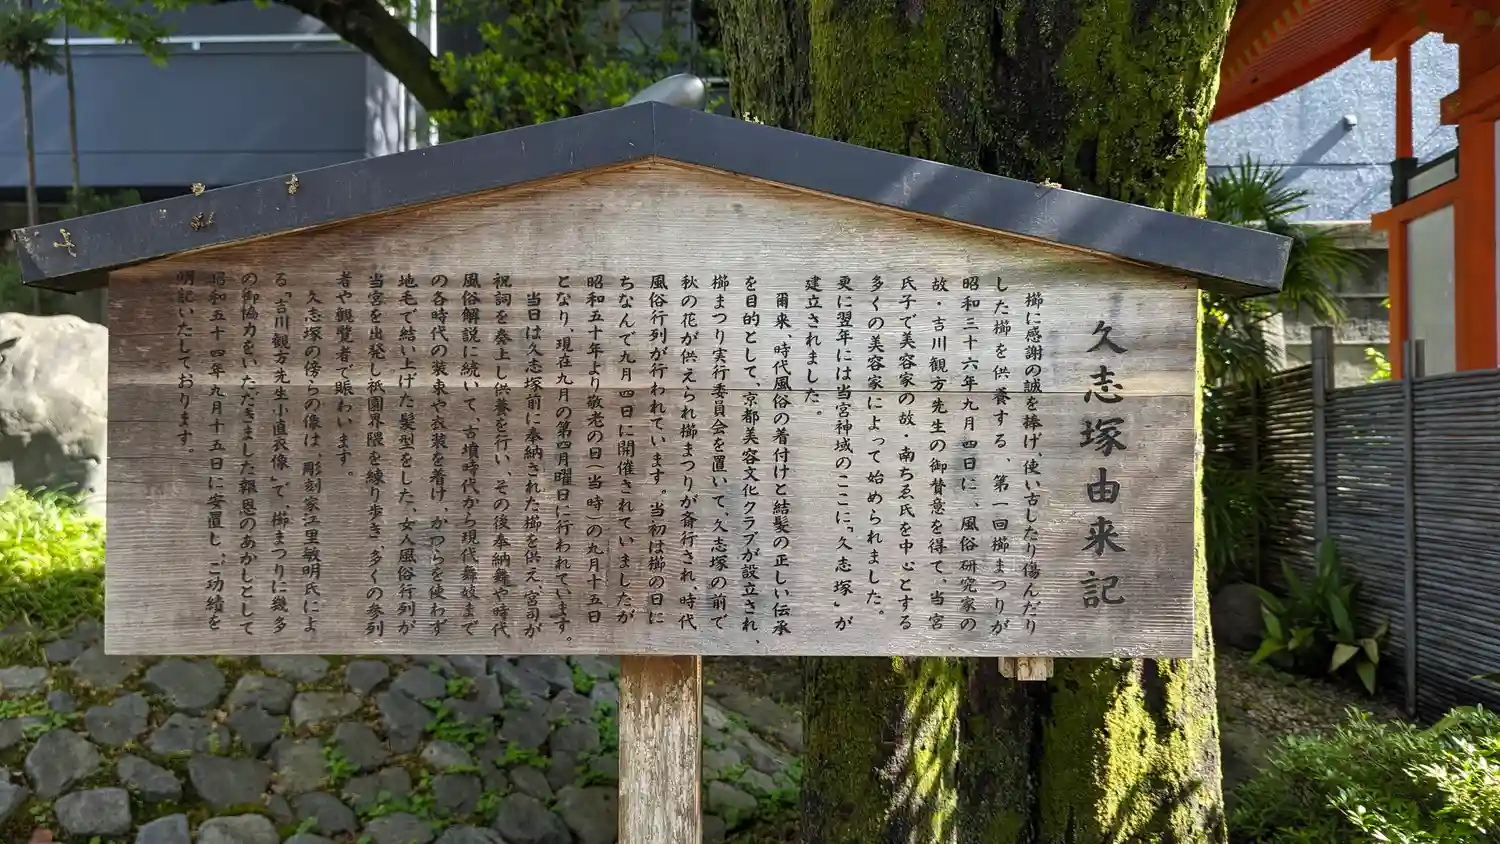 久志塚由来記
櫛に感謝の誠を捧げ、使い古したり傷んだり
した櫛を供養する、第一回櫛まつりが
昭和三十六年九月四日に、風俗研究家の
故・吉川観方先生の御賛意を得て、当宮
氏子で美容家の故・南ちゑ氏を中心とする
多くの美容家によって始められました。
更に翌年には当宮神域のここに「久志塚」が
建立されました。
爾来、時代風俗の着付けと結髪の正しい伝承
を目的として、京都美容文化クラブが設立され、
櫛まつり実行委員会を置いて、久志塚の前で
秋の花が供えられ櫛まつりが斎行され、時代
風俗行列が行われています。当初は櫛の日に
ちなんで九月四日に開催されていましたが
昭和五十年より敬老の日(当時)の九月十五日
となり、現在九月の第四月曜日に行われています。
当日は久志塚前に奉納された櫛を供え、宮司が
祝詞を奏上し供養を行い、その後奉納舞や時代
風俗解説に続いて、古墳時代から現代舞妓まで
の各時代の装束や衣装を着け、かつらを使わず
地毛で結い上げた髪型をした、女人風俗行列が
当宮を出発し祇園界隈を練り歩き、多くの参列
者や観覧者で賑わいます。
久志塚の傍らの像は、彫刻家江里敏明氏によ
る「吉川観方先生小直衣像」で、櫛まつりに幾多
の御協力をいただきました報恩のあかしとして
昭和五十四年九月十五日に安置し、ご功績を
明記いたしております。